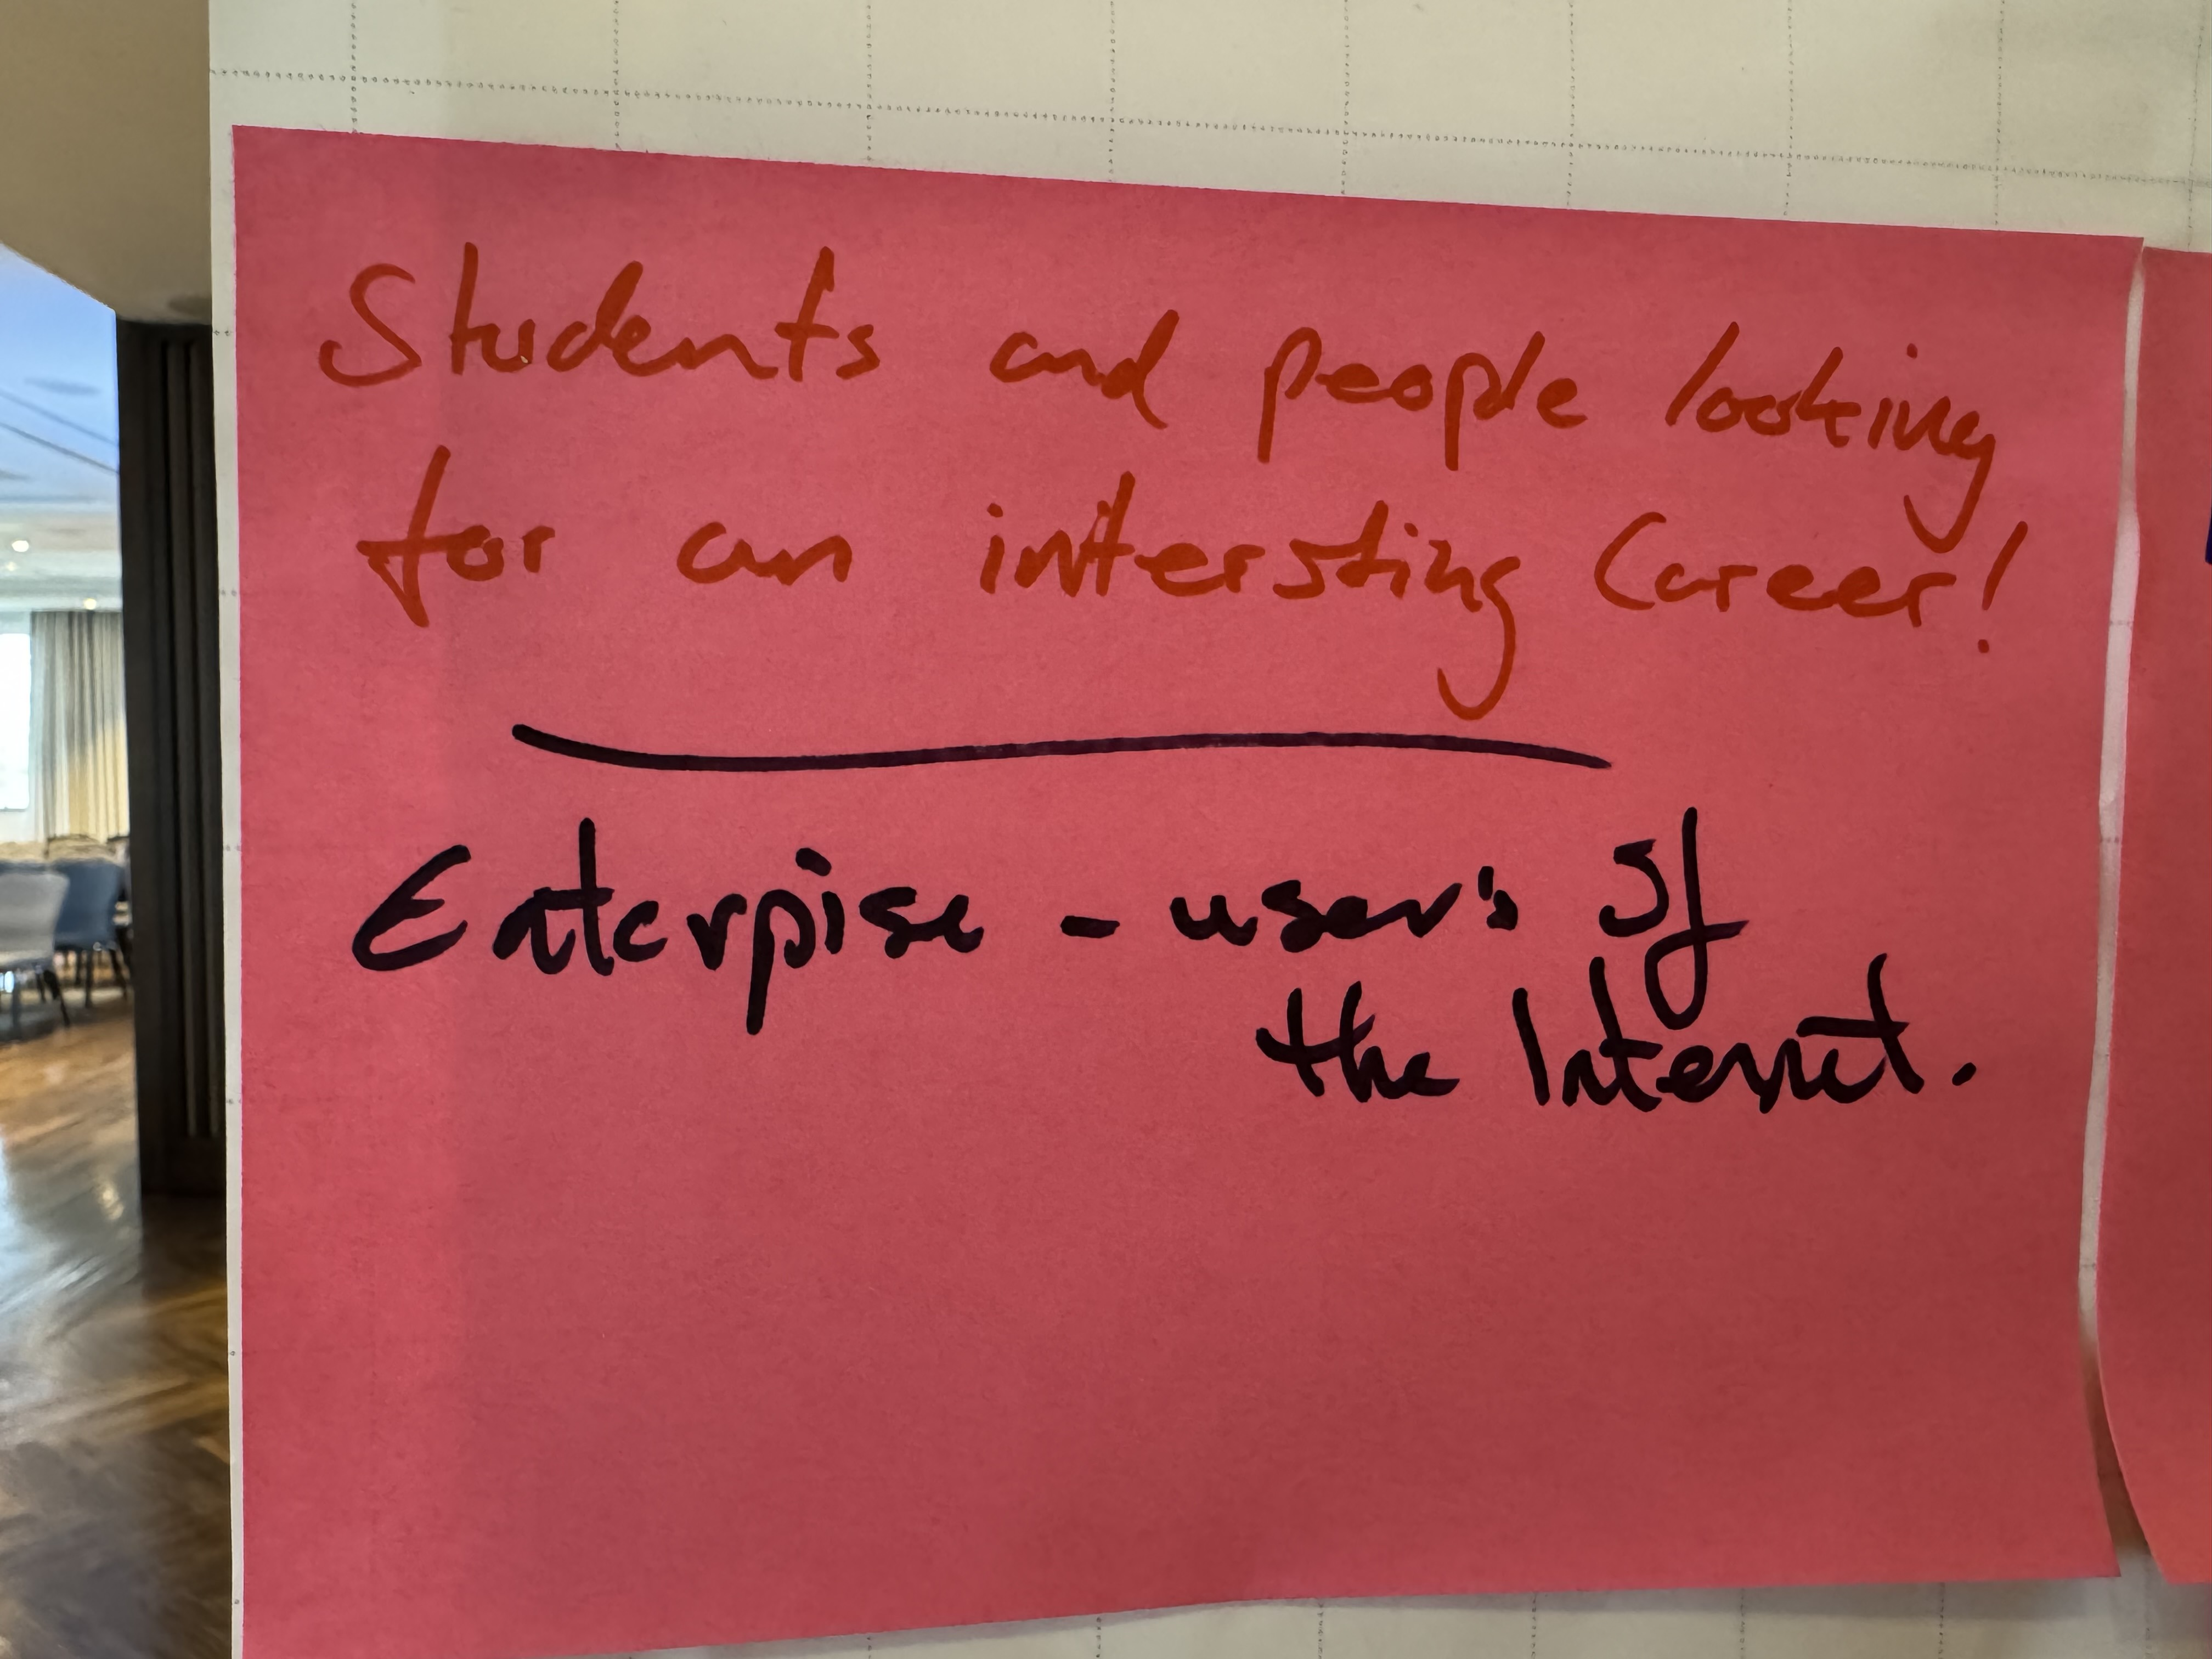 Students and people looking
for an intersting Career!
Enterpise - user's of
the Internet.